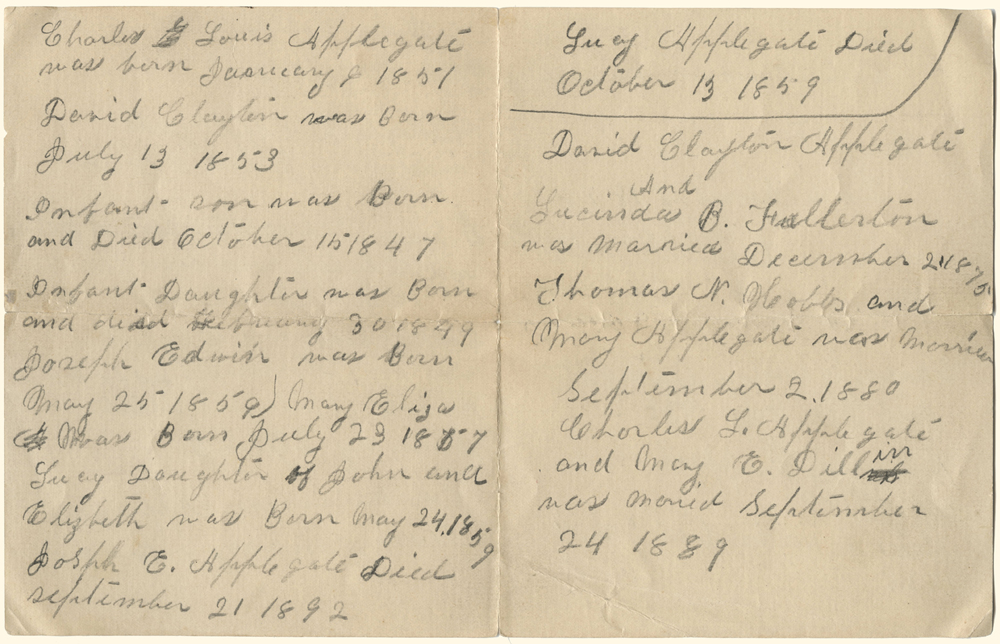 Charles Louis Applegate
was born January 9 1851
David Clayton was Born
July 13 1853
Infant son was Born
and Died October 15 1847
Infant Daughter was Born
and died Febreuary 30 1849
Joseph Edwin was Born
May 25 1859) Mary Eliza
Was Born July 23 1857
Lucy Daughter of John and
Elizbeth was Born May 24, 1859
Joseph E. Applegate Died
september 21 1892
Lucy Applegate Died
October 13 1859
David Clayton Applegate
And
Lucinda B. Fullerton
was Married December 21 1875
Thomas N. Hobbs and
Mary Applegate was Married
September 2, 1880
Charles L. Applegate
and Mary E. Dillin
was maried September
24 1889